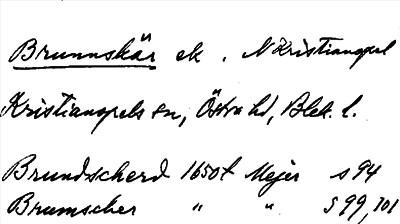 Brunnskär ek. N Kristianopel
Kristianopels sn, Östra hd, Blek. l.
Brundscherd 1650t Mejer s 94
Brumscher " " S 99, 101